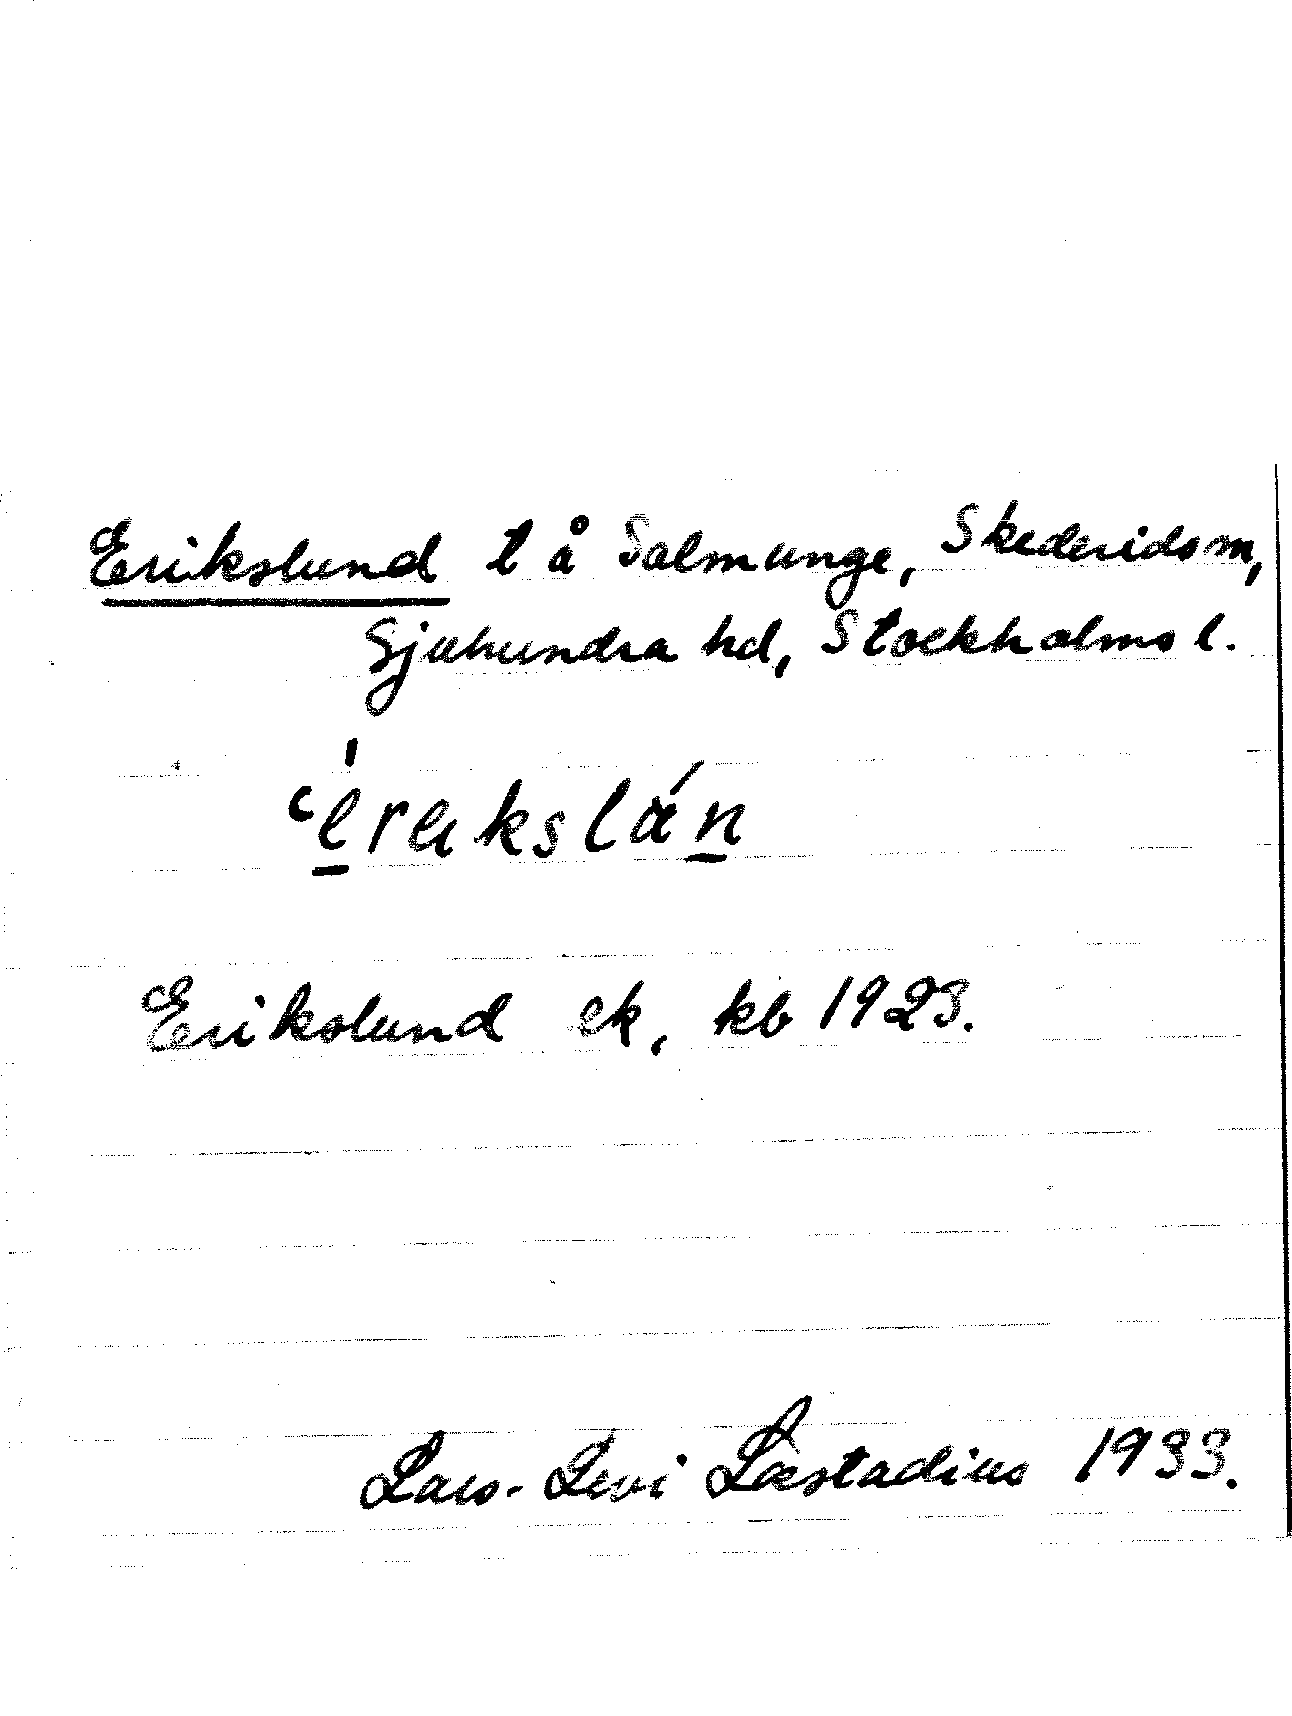 Erikslund t å Salmunge, Skederidsm,
Sjuhundra hd, Stockholms l.
Erikslund ek, kb 1923.
Lars-Levi Læstadius 1933.